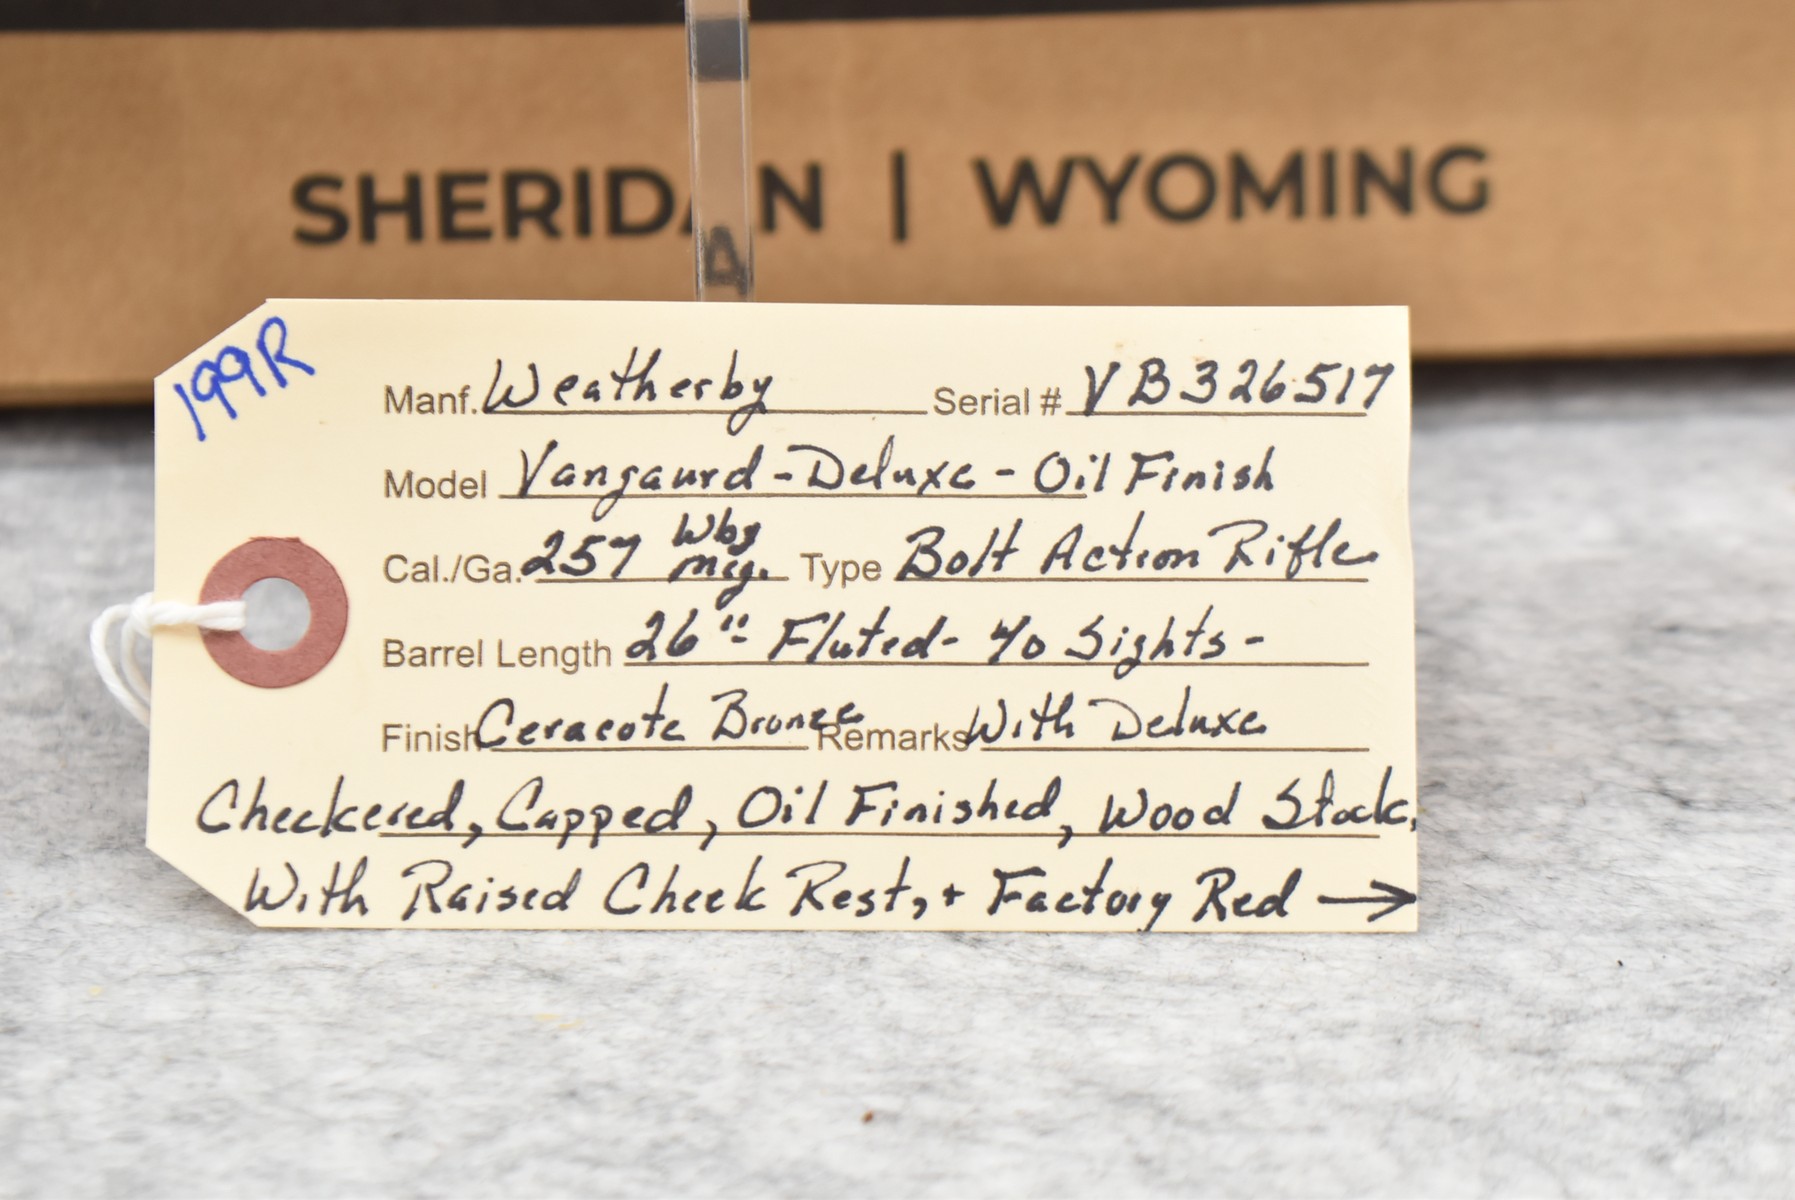 SHERIDAN | WYOMING
199R
Manf. Weatherby Serial # VB326517
Model Vangaurd-Deluxe-Oil Finish
Cal./Ga. 257 Wby Mag. Type Bolt Action Rifle
Barrel Length 26"- Fluted- W/o Sights-
Finish Ceracote Bronze Remarks With Deluxe
Checkered, Capped, Oil Finished, Wood Stock,
With Raised Cheek Rest, + Factory Red →